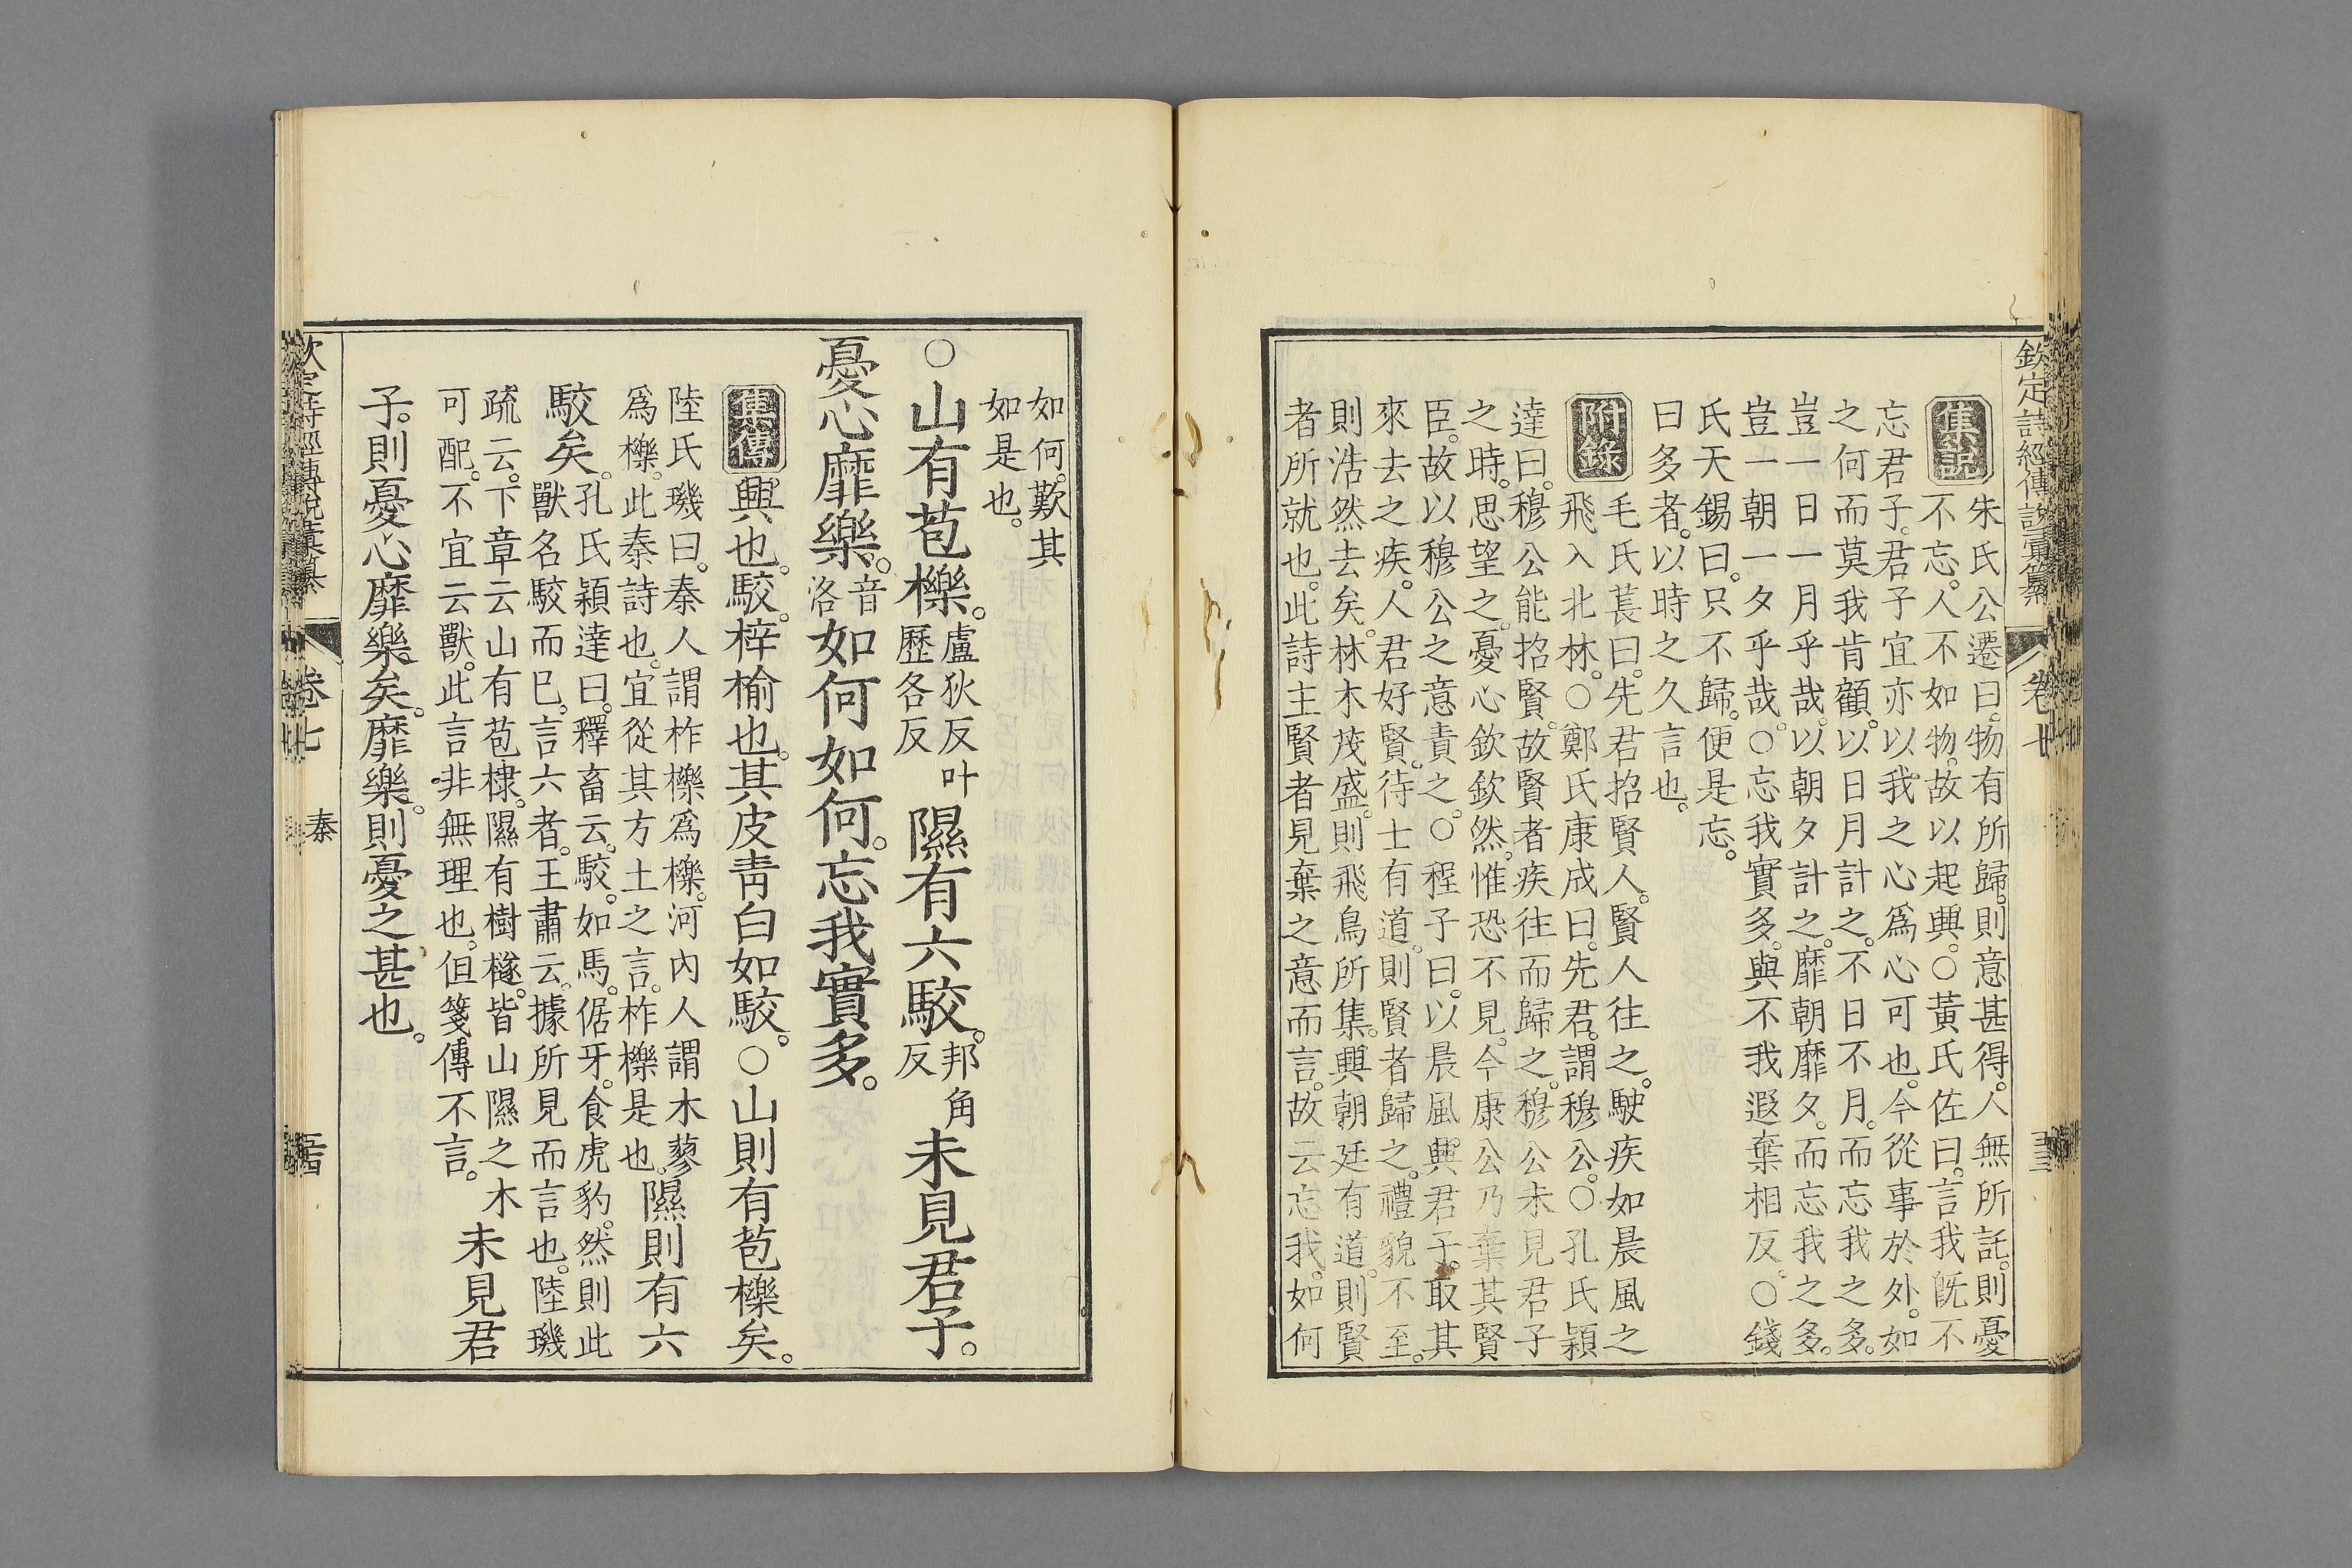 欽定詩經傳說彙纂 卷七
集說 朱氏公遷曰。物有所歸。則意甚得。人無所託。則憂
不忘。人不如物。故以起興。○黃氏佐曰。言我旣不
忘君子。君子宜亦以我之心爲心可也。今從事於外。如
之何而莫我肯顧。以日月計之。不日不月。而忘我之多。
豈一日一月乎哉。以朝夕計之。靡朝靡夕。而忘我之多。
豈一朝一夕乎哉。○忘我實多。與不我遐棄相反。○錢
氏天錫曰。只不歸。便是忘。
曰多者。以時之久言也。
附錄 毛氏萇曰。先君招賢人。賢人往之。駛疾如晨風之
飛入北林。○鄭氏康成曰。先君。謂穆公。○孔氏穎
達曰。穆公能招賢。故賢者疾往而歸之。穆公未見君子
之時。思望之。憂心欽欽然。惟恐不見。今康公乃棄其賢
臣。故以穆公之意責之。○程子曰。以晨風興君子。取其
來去之疾。人君好賢。待士有道。則賢者歸之。禮貌不至。
則浩然去矣。林木茂盛。則飛鳥所集。興朝廷有道。則賢
者所就也。此詩主賢者見棄之意而言。故云忘我。如何
如何。歎其
如是也。
○山有苞櫟。盧狄反叶歷各反隰有六駮。邦角反未見君子。
憂心靡樂。音洛如何如何。忘我實多。
集傳 興也。駮。梓榆也。其皮靑白如駮。○山則有苞櫟矣。
陸氏璣曰。秦人謂柞櫟爲櫟。河內人謂木蓼
爲櫟。此秦詩也。宜從其方土之言。柞櫟是也。隰則有六
駮矣。孔氏穎達曰。釋畜云。駮。如馬。倨牙。食虎豹。然則此
獸名駮而已。言六者。王肅云。據所見而言也。陸璣
疏云。下章云山有苞棣。隰有樹檖。皆山隰之木
可配。不宜云獸。此言非無理也。但箋傳不言。未見君
子。則憂心靡樂矣。靡樂。則憂之甚也。
卷七 秦